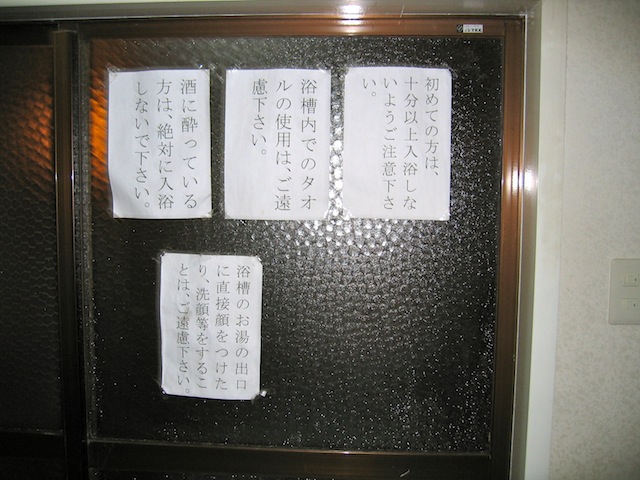 初めての方は、
十分以上入浴しな
いようご注意下さ
い。
浴槽内でのタオ
ルの使用は、ご遠
慮下さい。
酒に酔っている
方は、絶対に入浴
しないで下さい。
浴槽のお湯の出口
に直接顔をつけた
り、洗顔等をするこ
とは、ご遠慮下さい。